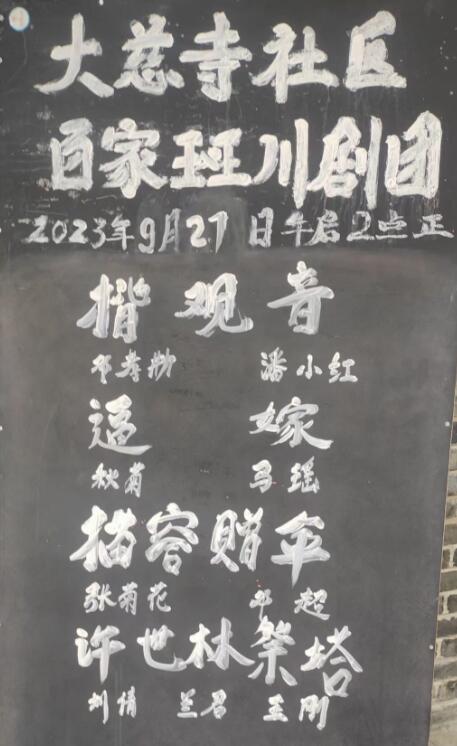 大慈寺社区
百家班川剧团
2023年9月27日午后2点正
揹观音
邓孝 潘小红
逼嫁
秋菊 马瑶
描容赠伞
张菊花 邓超
许世林祭塔
刘倩 兰君 王刚